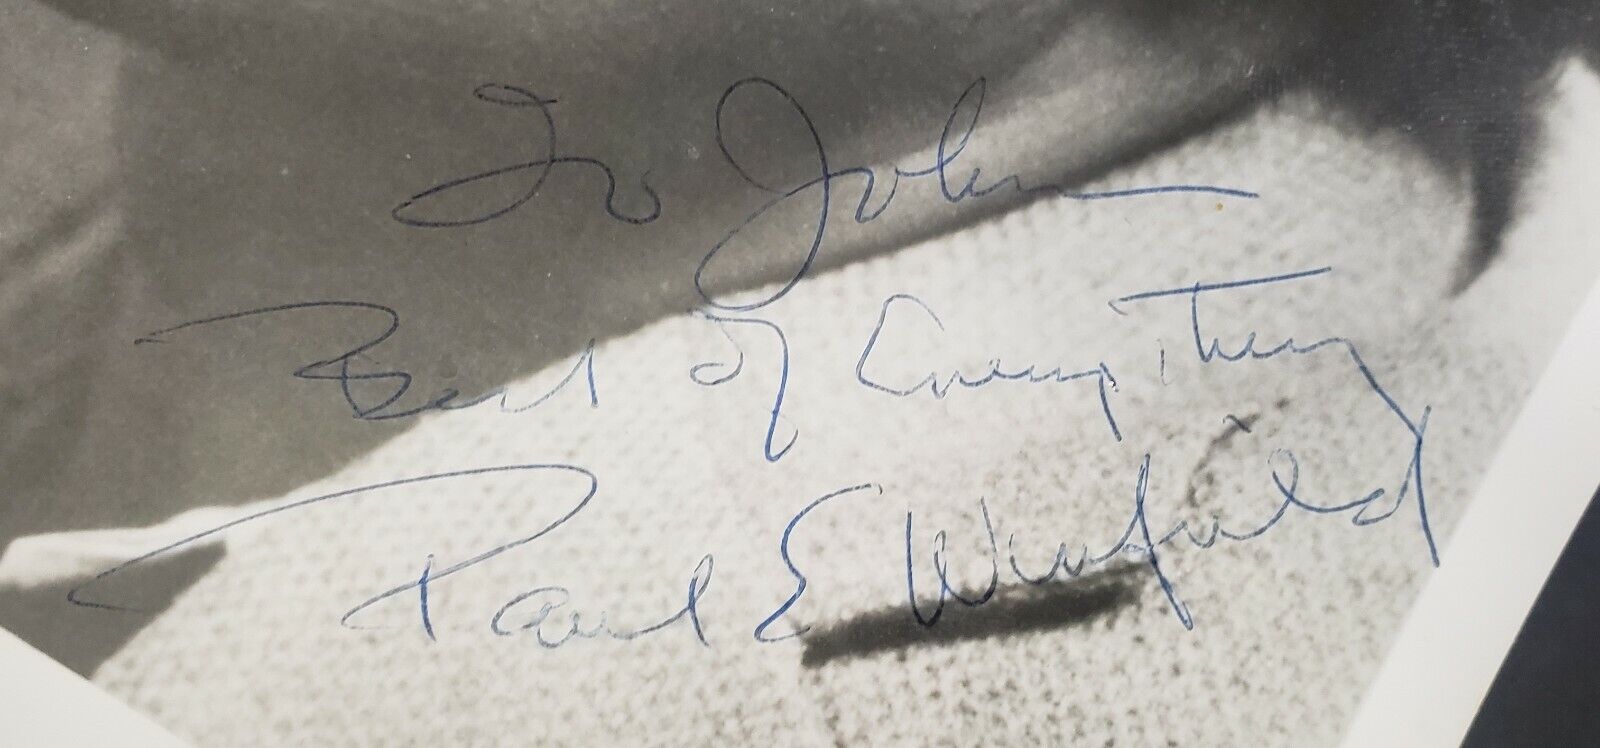 To John
Best of Everything
Paul E Winfield